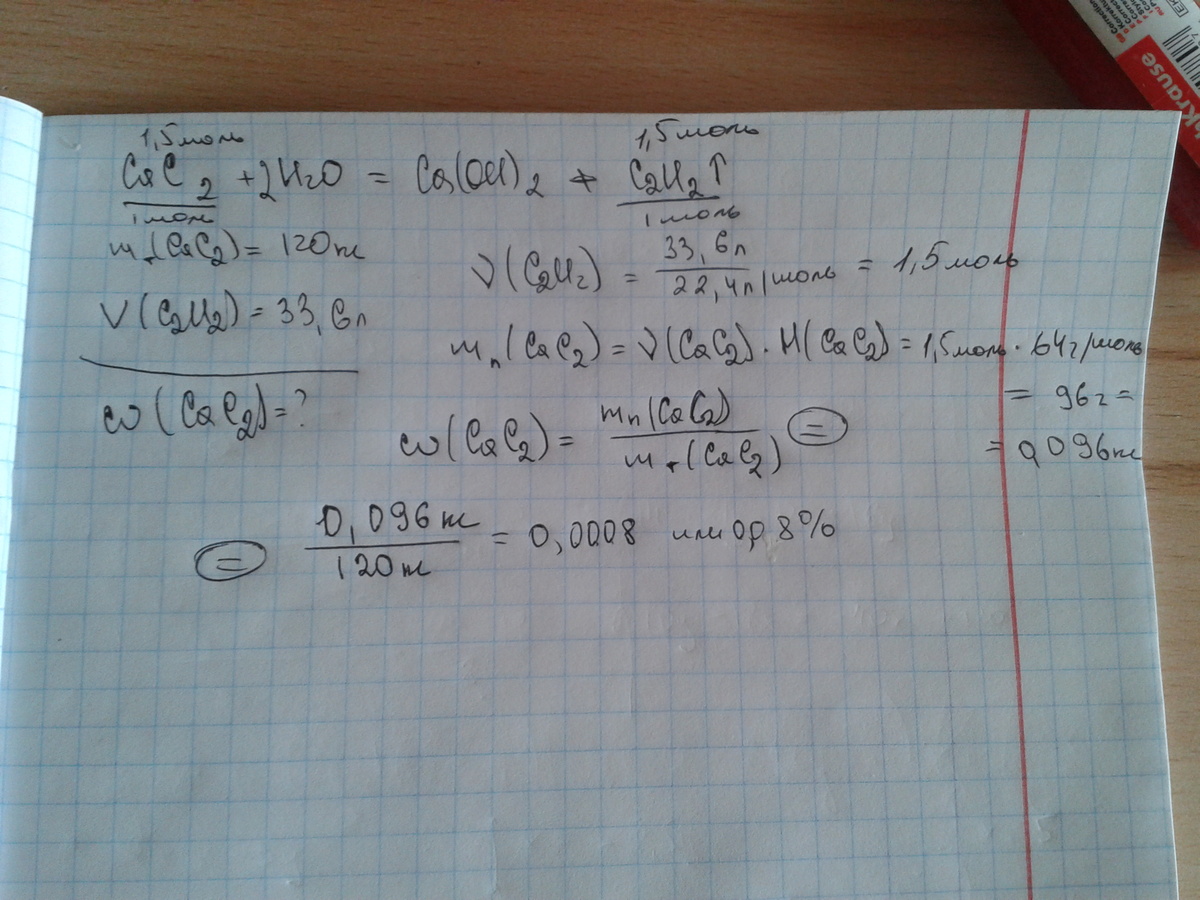 1,5моль 1,5моль
CaC2 + 2H2O = Ca(OH)2 + C2H2↑
1моль 1моль
mт(CaC2) = 120кг
V(C2H2) = 33,6л
ω(CaC2) = ?
ν(C2H2) = 33,6л / 22,4л/моль = 1,5моль
mп(CaC2) = ν(CaC2) · M(CaC2) = 1,5моль · 64г/моль
= 96г =
= 0,096кг
ω(CaC2) = mп(CaC2) / mт(CaC2) =
= 0,096кг / 120кг = 0,0008 или 0,08%
Krause
Correction